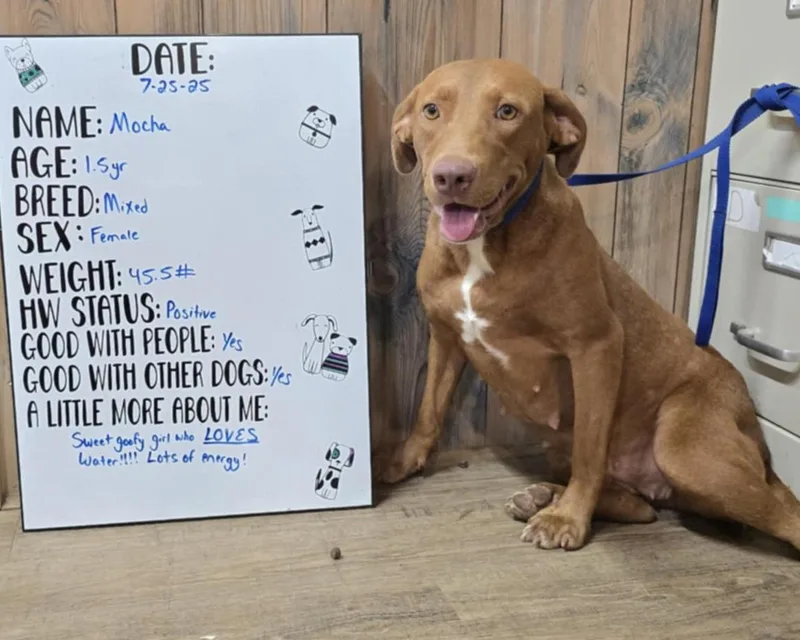 DATE:
7-25-25
NAME: Mocha
AGE: 1.5yr
BREED: Mixed
SEX: Female
WEIGHT: 45.5#
HW STATUS: Positive
GOOD WITH PEOPLE: Yes
GOOD WITH OTHER DOGS: Yes
A LITTLE MORE ABOUT ME:
Sweet goofy girl who LOVES
Water!!!! Lots of energy!